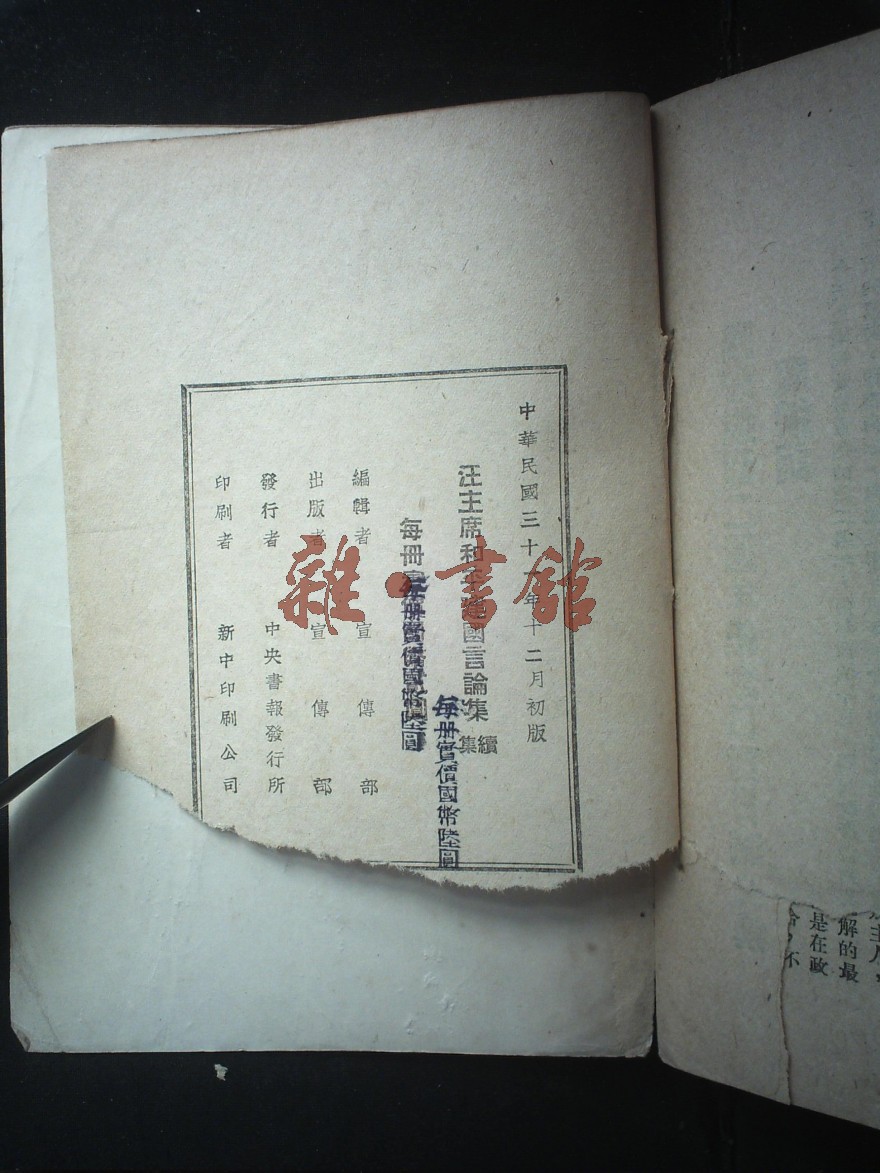 中華民國三十一年十二月初版
汪主席和平建國言論集 續集
每冊實價國幣陸圓
每冊
每冊實價國幣陸圓
編輯者 宣傳部
出版者 宣傳部
發行者 中央書報發行所
印刷者 新中印刷公司
雜·書館
主人
解的最
是在政
不